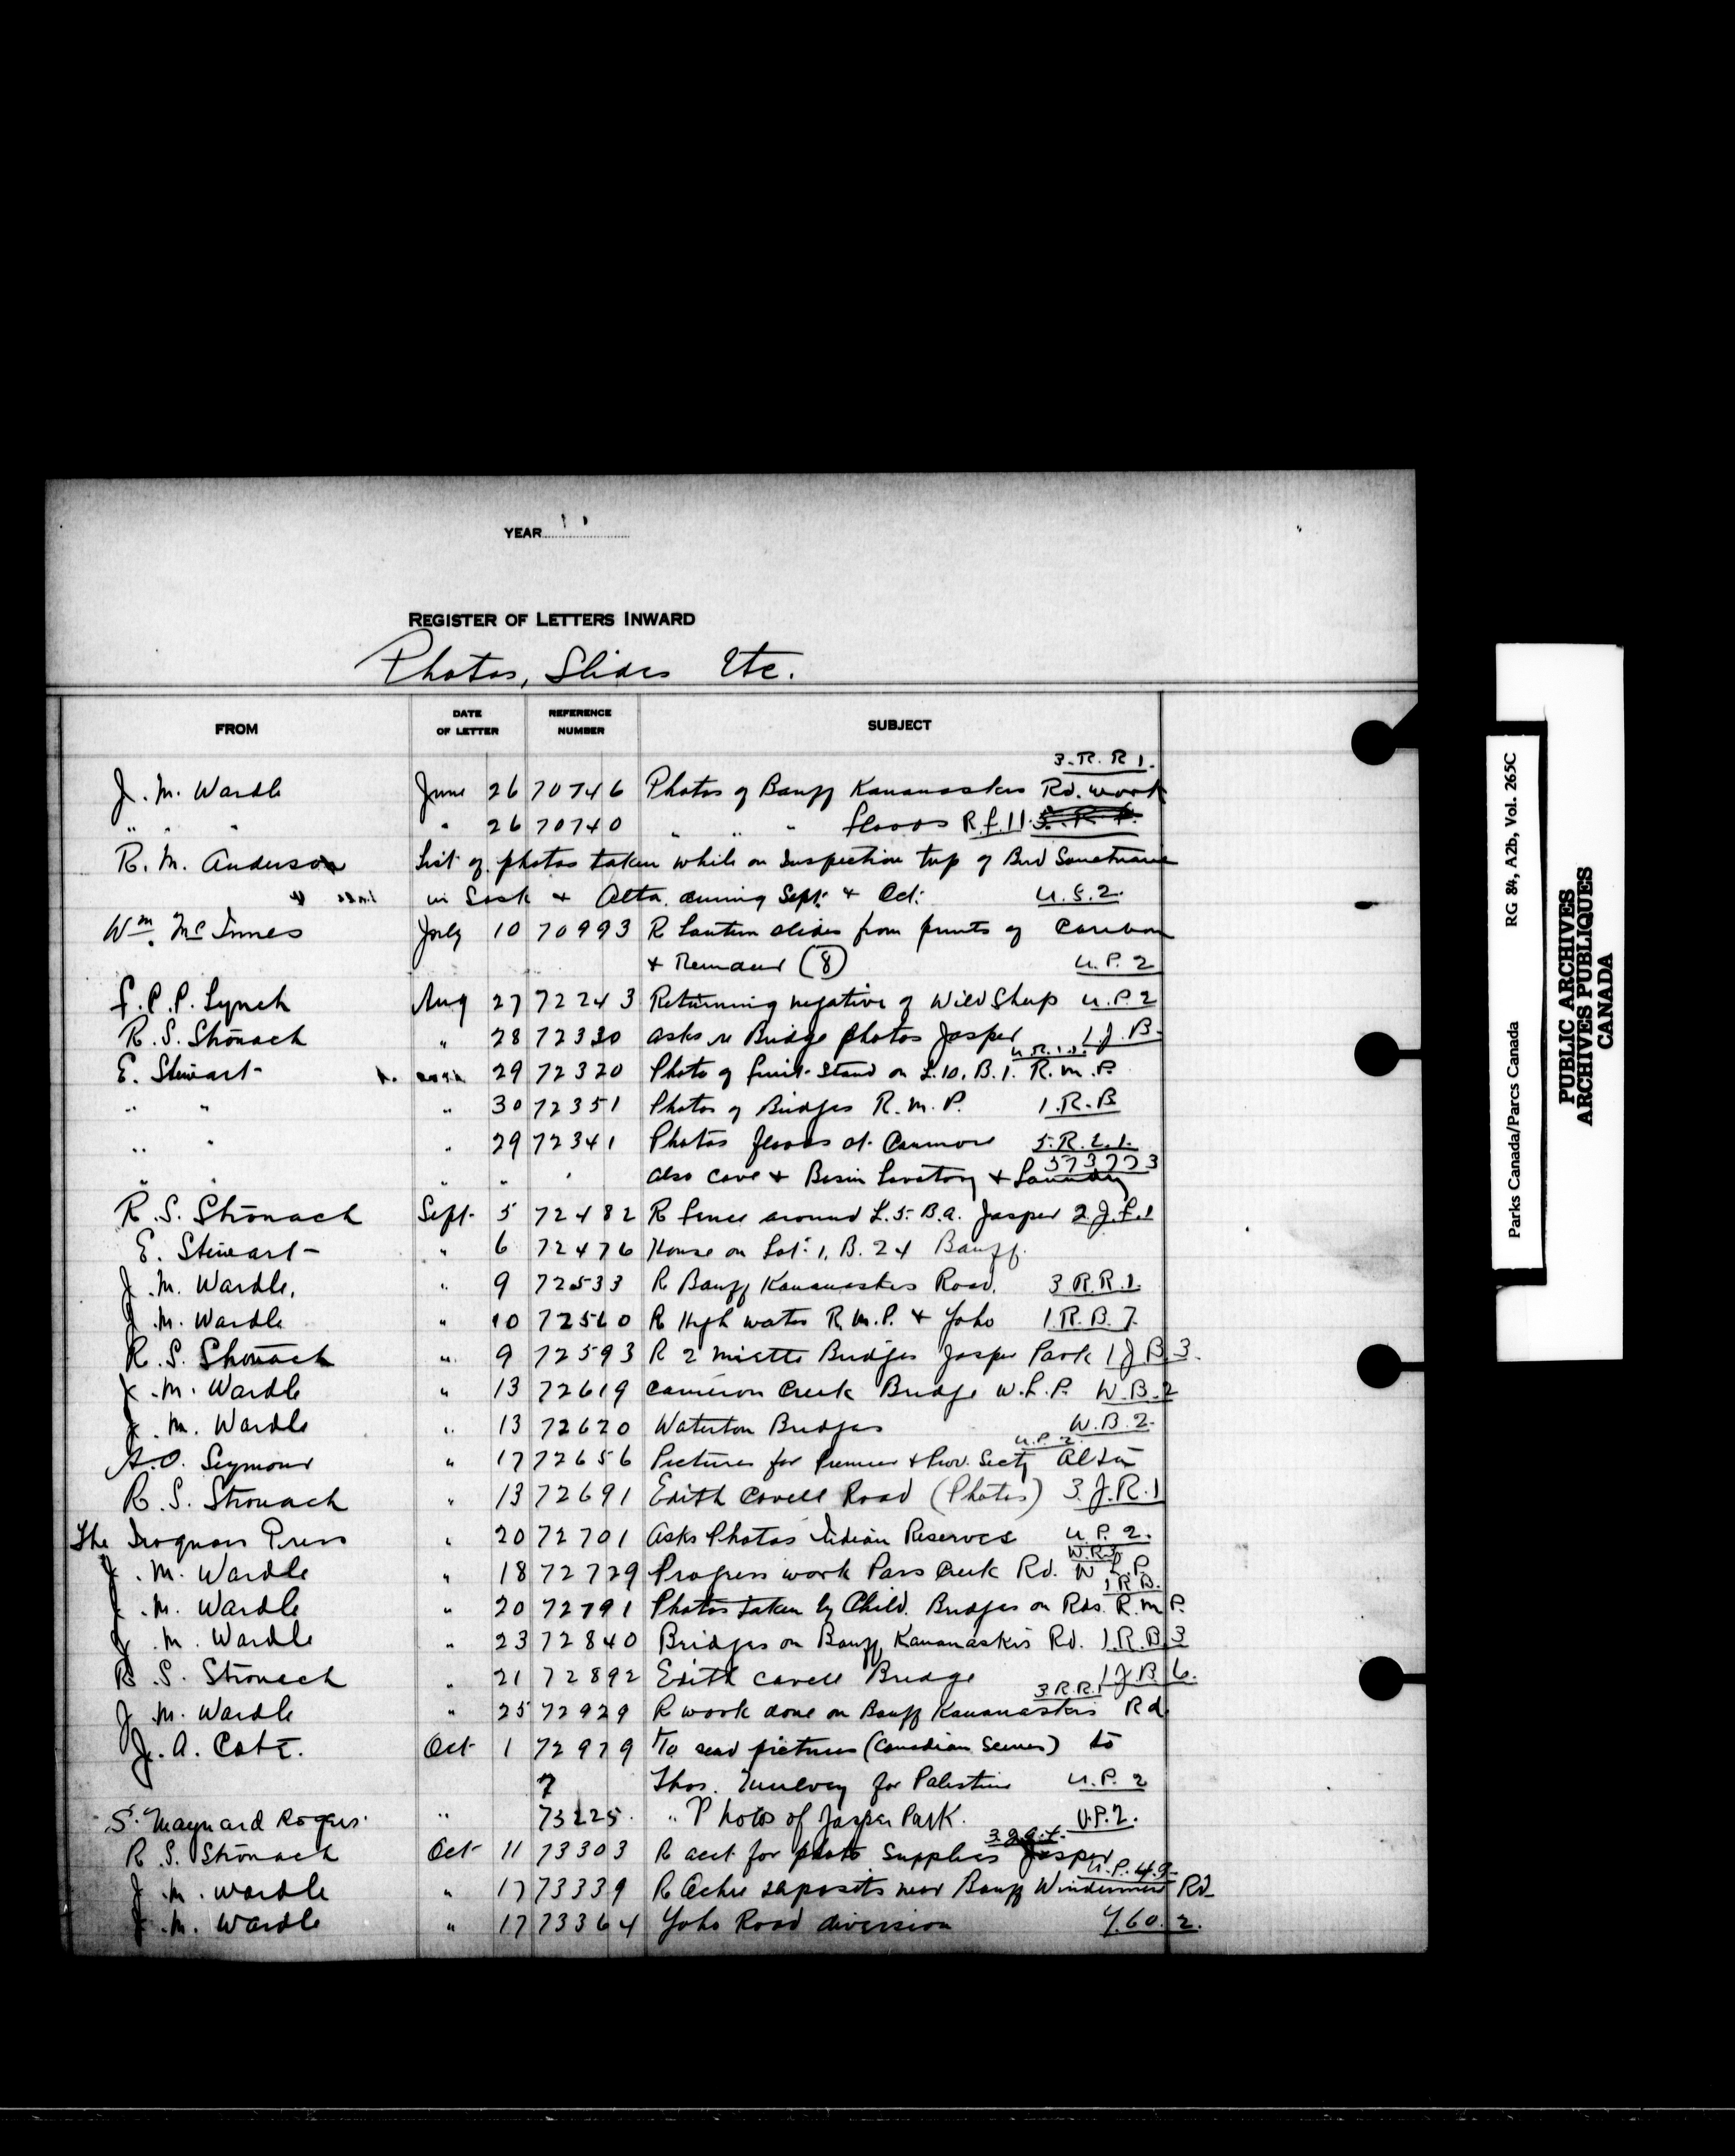 YEAR
REGISTER OF LETTERS INWARD
Photos, Slides Etc.
FROM DATE OF LETTER REFERENCE NUMBER SUBJECT
3.R.R 1.
J. M. Wardle June 26 70746 Photos of Banff Kananaskis Rd. work
" " " " 26 70740 " " " floods R.f.11.
R. M. Anderson List of photos taken while on Inspection trip of Bird Sanctuaries
in Sask & Alta. during Sept. & Oct. U.S.2.
Wm. McInnes July 10 70993 R Lantern slides from prints of Caribou
& Reindeer (8) U.P.2
F.P.P. Lynch Aug 27 72243 Returning negative of Wild Sheep U.P.2
R.S. Stronach " 28 72330 asks re Bridge photos Jasper 1.J.B.
E. Stewart 29 72320 Photo of fruit Stand on L.10, B.1. R.M.P.
" " " 30 72351 Photos of Bridges R.M.P. 1.R.B
" " " 29 72341 Photos floods at Canmore 5.R.L.1.
373773
" " " also cave & Basin Lavatory & Laundry
R.S. Stronach Sept. 5 72482 R fence around L.5. B.a. Jasper 2.J.f.1
E. Stewart " 6 72476 House on Lot 1, B. 24 Banff.
J.M. Wardle, " 9 72533 R Banff Kananaskis Road. 3 R.R.1.
J.M. Wardle " 10 72560 R High water R.M.P. & Yoho 1.R.B.7.
R.S. Stronach " 9 72593 R 2 Miette Bridges Jasper Park 1 J B 3.
J.M. Wardle " 13 72619 Cameron Creek Bridge W.L.P. W.B.2
J.M. Wardle " 13 72620 Waterton Bridges W.B.2.
U.P.2.
A.O. Seymour " 17 72656 Pictures for Premier & Prov. Secty Alta
R.S. Stronach " 13 72691 Edith Cavell Road (Photos) 3.J.R.1
The Iroquois Press " 20 72701 asks Photos Indian Reserves U.P.2.
W.R.3
J.M. Wardle " 18 72729 Progress work Pass Creek Rd. W.L.P.
1 R B.
J.M. Wardle " 20 72791 Photos taken by Child. Bridges on Rds. R.M.P.
J.M. Wardle " 23 72840 Bridges on Banff Kananaskis Rd. 1.R.B.3
R.S. Stronach " 21 72892 Edith Cavell Bridge 1 J.B.6.
3 R.R.1
J.M. Wardle " 25 72929 R work done on Banff Kananaskis Rd
J.A. Cote. Oct 1 72979 To send pictures (Canadian Scenes) to
7 Thos. Mulvey for Palestine U.P.2
S. Maynard Rogers " 73225. " Photos of Jasper Park. U.P.2.
R.S. Stronach Oct 11 73303 R acct for photo Supplies Jasper
U.P.4.9.
J.M. Wardle " 17 73339 R Ochre deposits near Banff Windermere Rd
J.M. Wardle " 17 73364 Yoho Road diversion Y.60.2.
Parks Canada/Parcs Canada RG 84, A2b, Vol. 265C
PUBLIC ARCHIVES
ARCHIVES PUBLIQUES
CANADA